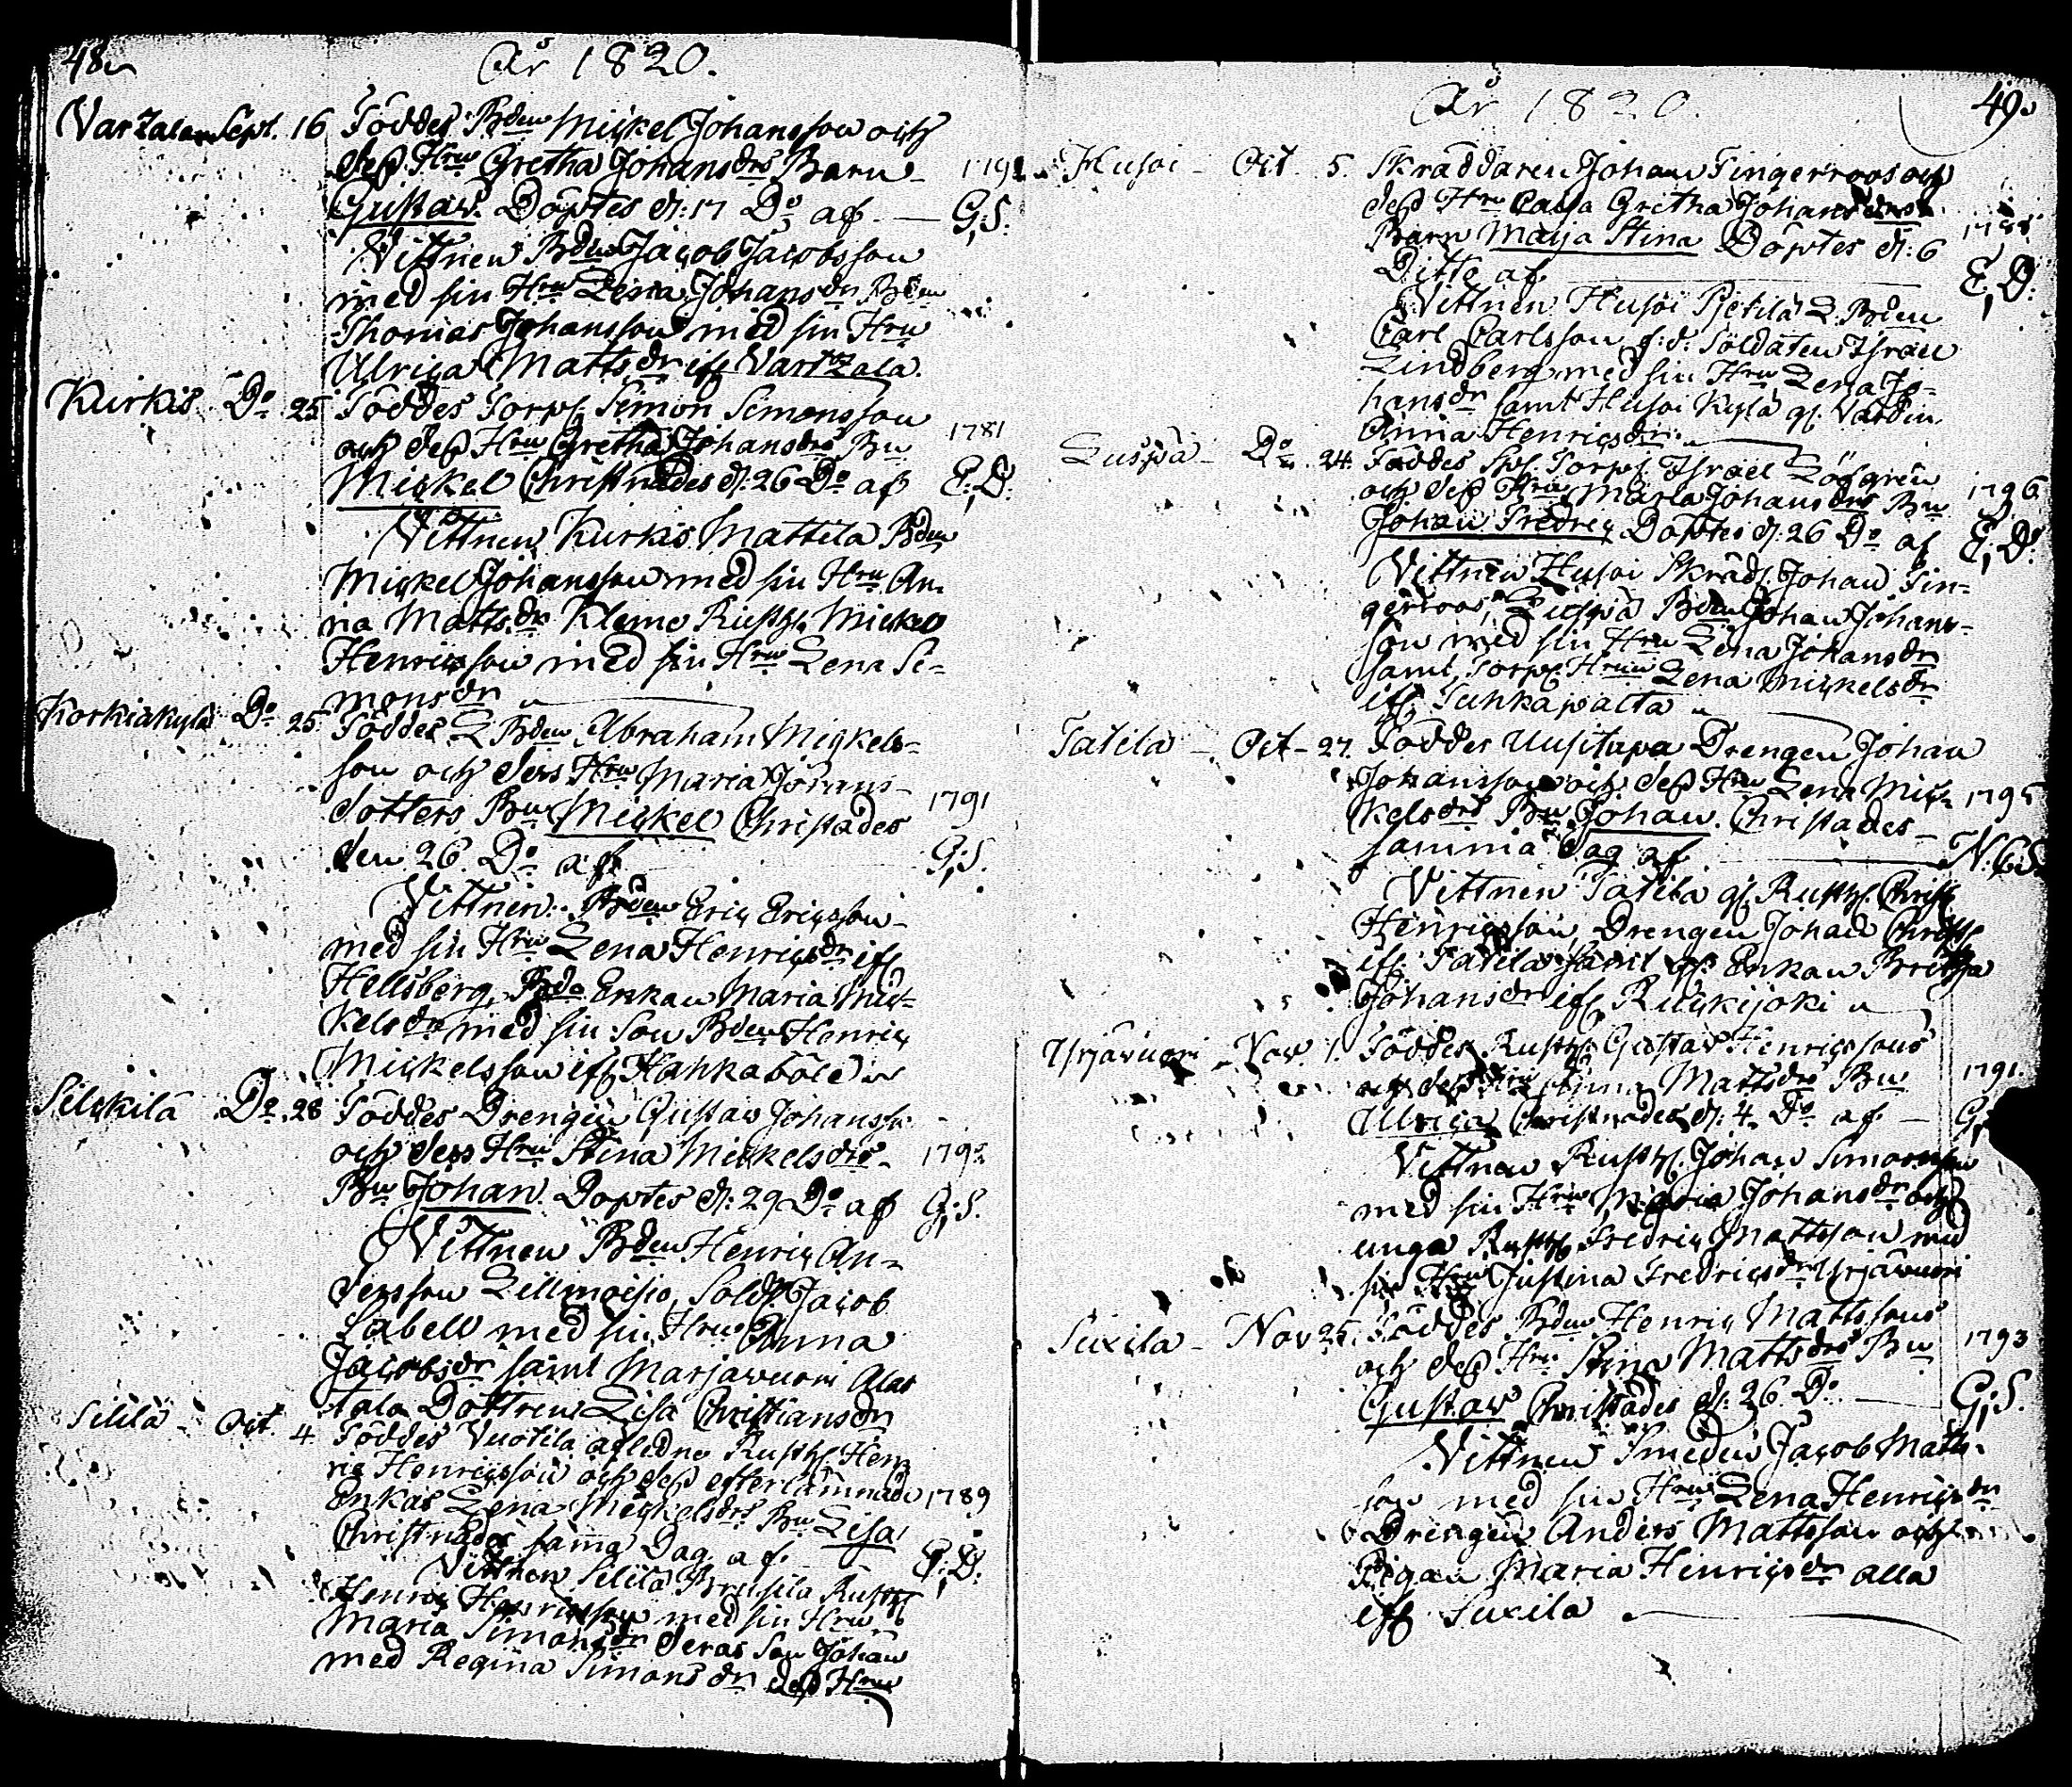 48.
År 1820.
Vartzala Sept. 16 Föddes Bden Mickel Johansson och
dess Hru Gretha Johansdrs Barn
Gustav. Döptes d: 17 Do af — G,S.
Vittnen Bden Jacob Jacobsson
med sin Hru Lena Johansdr Bden
Thomas Johansson med sin Hru
Ulrica Mattsdr if Vartzala.
Kurkis Do 25 Föddes Torp. Simon Simonsson
och dess Hru Gretha Johansdrs Bn 1781
Mickel Christnades d: 26 Do af E:D:
Vittnen Kurkis Mattila Bden
Mickel Johansson med sin Hru An-
na Mattsdr Klemo Rusth. Mickel
Henricsson med sin Hru Lena Si-
monsdr
Korkiakylä Do 25 Föddes L. Bden Abraham Mickels-
son och dess Hru Maria Johans-
dotters Bn Mickel Christades 1791
den 26 Do af G,S.
Vittnen. Bden Eric Ericsson
med sin Hru Lena Henricsdr if
Hellsberg, Bde Enkan Maria Mic-
kelsdr med sin Son Bden Henric
Mickelsson if Hankaböle
Silckilä Do 28 Föddes Drengen Gustav Johansso
och dess Hru Stina Mickelsdrs
Bn Johan. Döptes d: 29 Do af G:S.
Vittnen Bden Henric An-
dersson Lillmoisio, Sold. Jacob
Sabell med sin Hru Anna
Jacobsdr samt Marjavuori Alas
talo Dottren Lisa Christiansdr
Sililä Oct. 4 Föddes Vuotila afledne Rusth. Hen-
ric Henricsson och dess efterlämnade
Enkas Lena Mickelsdrs Bn Lisa 1789
Christnades samma Dag af E:D:
Vittnen Sililä Brusila Rusth.
Henric Henricsson med sin Hru
Maria Simonsdr deras Son Johan
med Regina Simonsdr dess Hru
År 1820.
49.
Husoi Oct. 5. Skräddaren Johan Fingerroos och
dess Hru Caisa Gretha Johansdrs
Barn Maija Stina Döptes d: 6 1788
Ditto af E,D:
Vittnen Husoi Pjetilä L. Bden
Carl Carlsson f:d: Soldaten Israel
Lindberg med sin Hru Lena Jo-
hansdr samt Husoi Kylä gl. Värdin.
Anna Henricsdr
Luspä Do 24. Föddes Spl. Torp. Israel Löfgren
och dess Hru Maria Johansdrs Bn 1796
Johan Fredric Döptes d: 26 Do af E,D:
Vittnen Husoi Skräd. Johan Fin-
gerroos, Luspä Bden Johan Johans-
son med sin Hru Lena Johansdr
samt Torp. Hrun Lena Mickelsdr
if Tuhkapalta
Tatila Oct 27. Föddes Uusitupa Drengen Johan
Johansson och dess Hru Lena Mic-
kelsdrs Bn Johan. Christades 1795
samma Dag af N.C.S.
Vittnen Tatila gl. Rusth. Christ
Henricsson, Drengen Johan Christ
if Tatila samt gl. Enkan Britha
Johansdr if Kuckijoki
Yrjävuori Nov 1. Föddes Rusth. Gustav Henricssons
och dess Hru Anna Mattsdrs Bn 1791.
Ulrica Christnades d: 4 Do af — G,
Vittnen Rusth. Johan Simonsson
med sin Hru Maria Johansdr och
unga Rusth. Fredric Mattsson med
sin Hru Justina Fredricsdr Yrjävuori
Suxila Nov 25. Föddes Bden Henric Mattssons
och dess Hru Stina Mattsdrs Bn 1793
Gustav Christades d: 26 Do — G,S.
Vittnen Smeden Jacob Matts-
son med sin Hru Lena Henricsdr
Drengen Anders Mattsson och
Pigan Maria Henricsdr alla
if Suxila